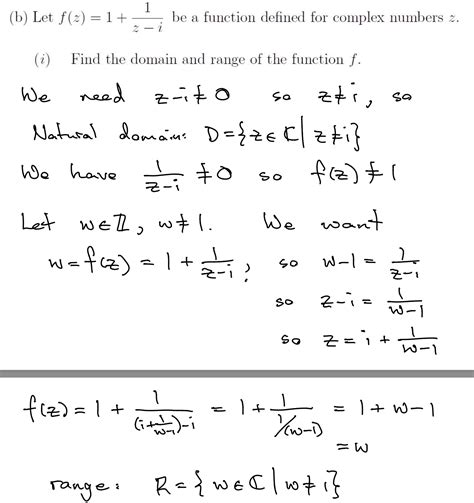 (b) Let f(z) = 1 + 1/(z − i) be a function defined for complex numbers z.
(i) Find the domain and range of the function f.
We need z-i≠0 so z≠i, so
Natural domain: D={z∈ℂ| z≠i}
We have 1/(z-i) ≠0 so f(z)≠1
Let w∈ℤ, w≠1. We want
w=f(z) = 1+ 1/(z-i), so w-1 = 1/(z-i)
so z-i = 1/(w-1)
so z = i + 1/(w-1)
f(z) = 1 + 1/((i+1/(w-1))-i) = 1+ 1/(1/(w-1)) = 1+w-1
=w
range: R={w∈ℂ|w≠i}